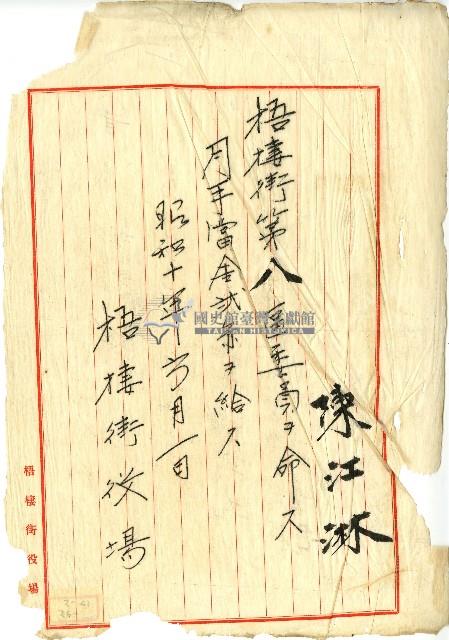 陳江淋
梧棲街第八區委員ヲ命ス
月手當金貳圓ヲ給ス
昭和十年六月一日
梧棲街役場
梧棲街役場
國史館臺灣文獻館
TAIWAN HISTORICA